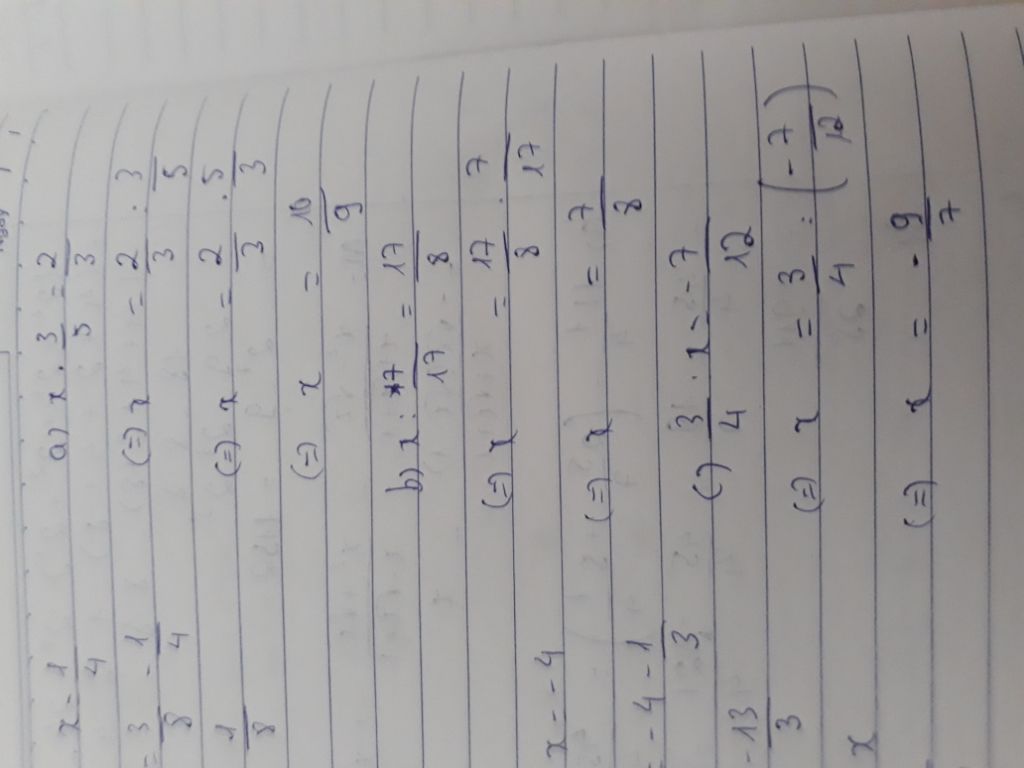 x - 1/4
= 3/8 - 1/4
1/8
x - -4
= -4 - 1/3
-13/3
x
a) x . 3/5 = 2/3
(=) x = 2/3 . 3/5
(=) x = 2/3 . 5/3
(=) x = 10/9
b) x : 7/17 = 17/8
(=) x = 17/8 . 7/17
(=) x = 7/8
c) 3/4 . x = -7/12
(=) x = 3/4 : (-7/12)
(=) x = -9/7